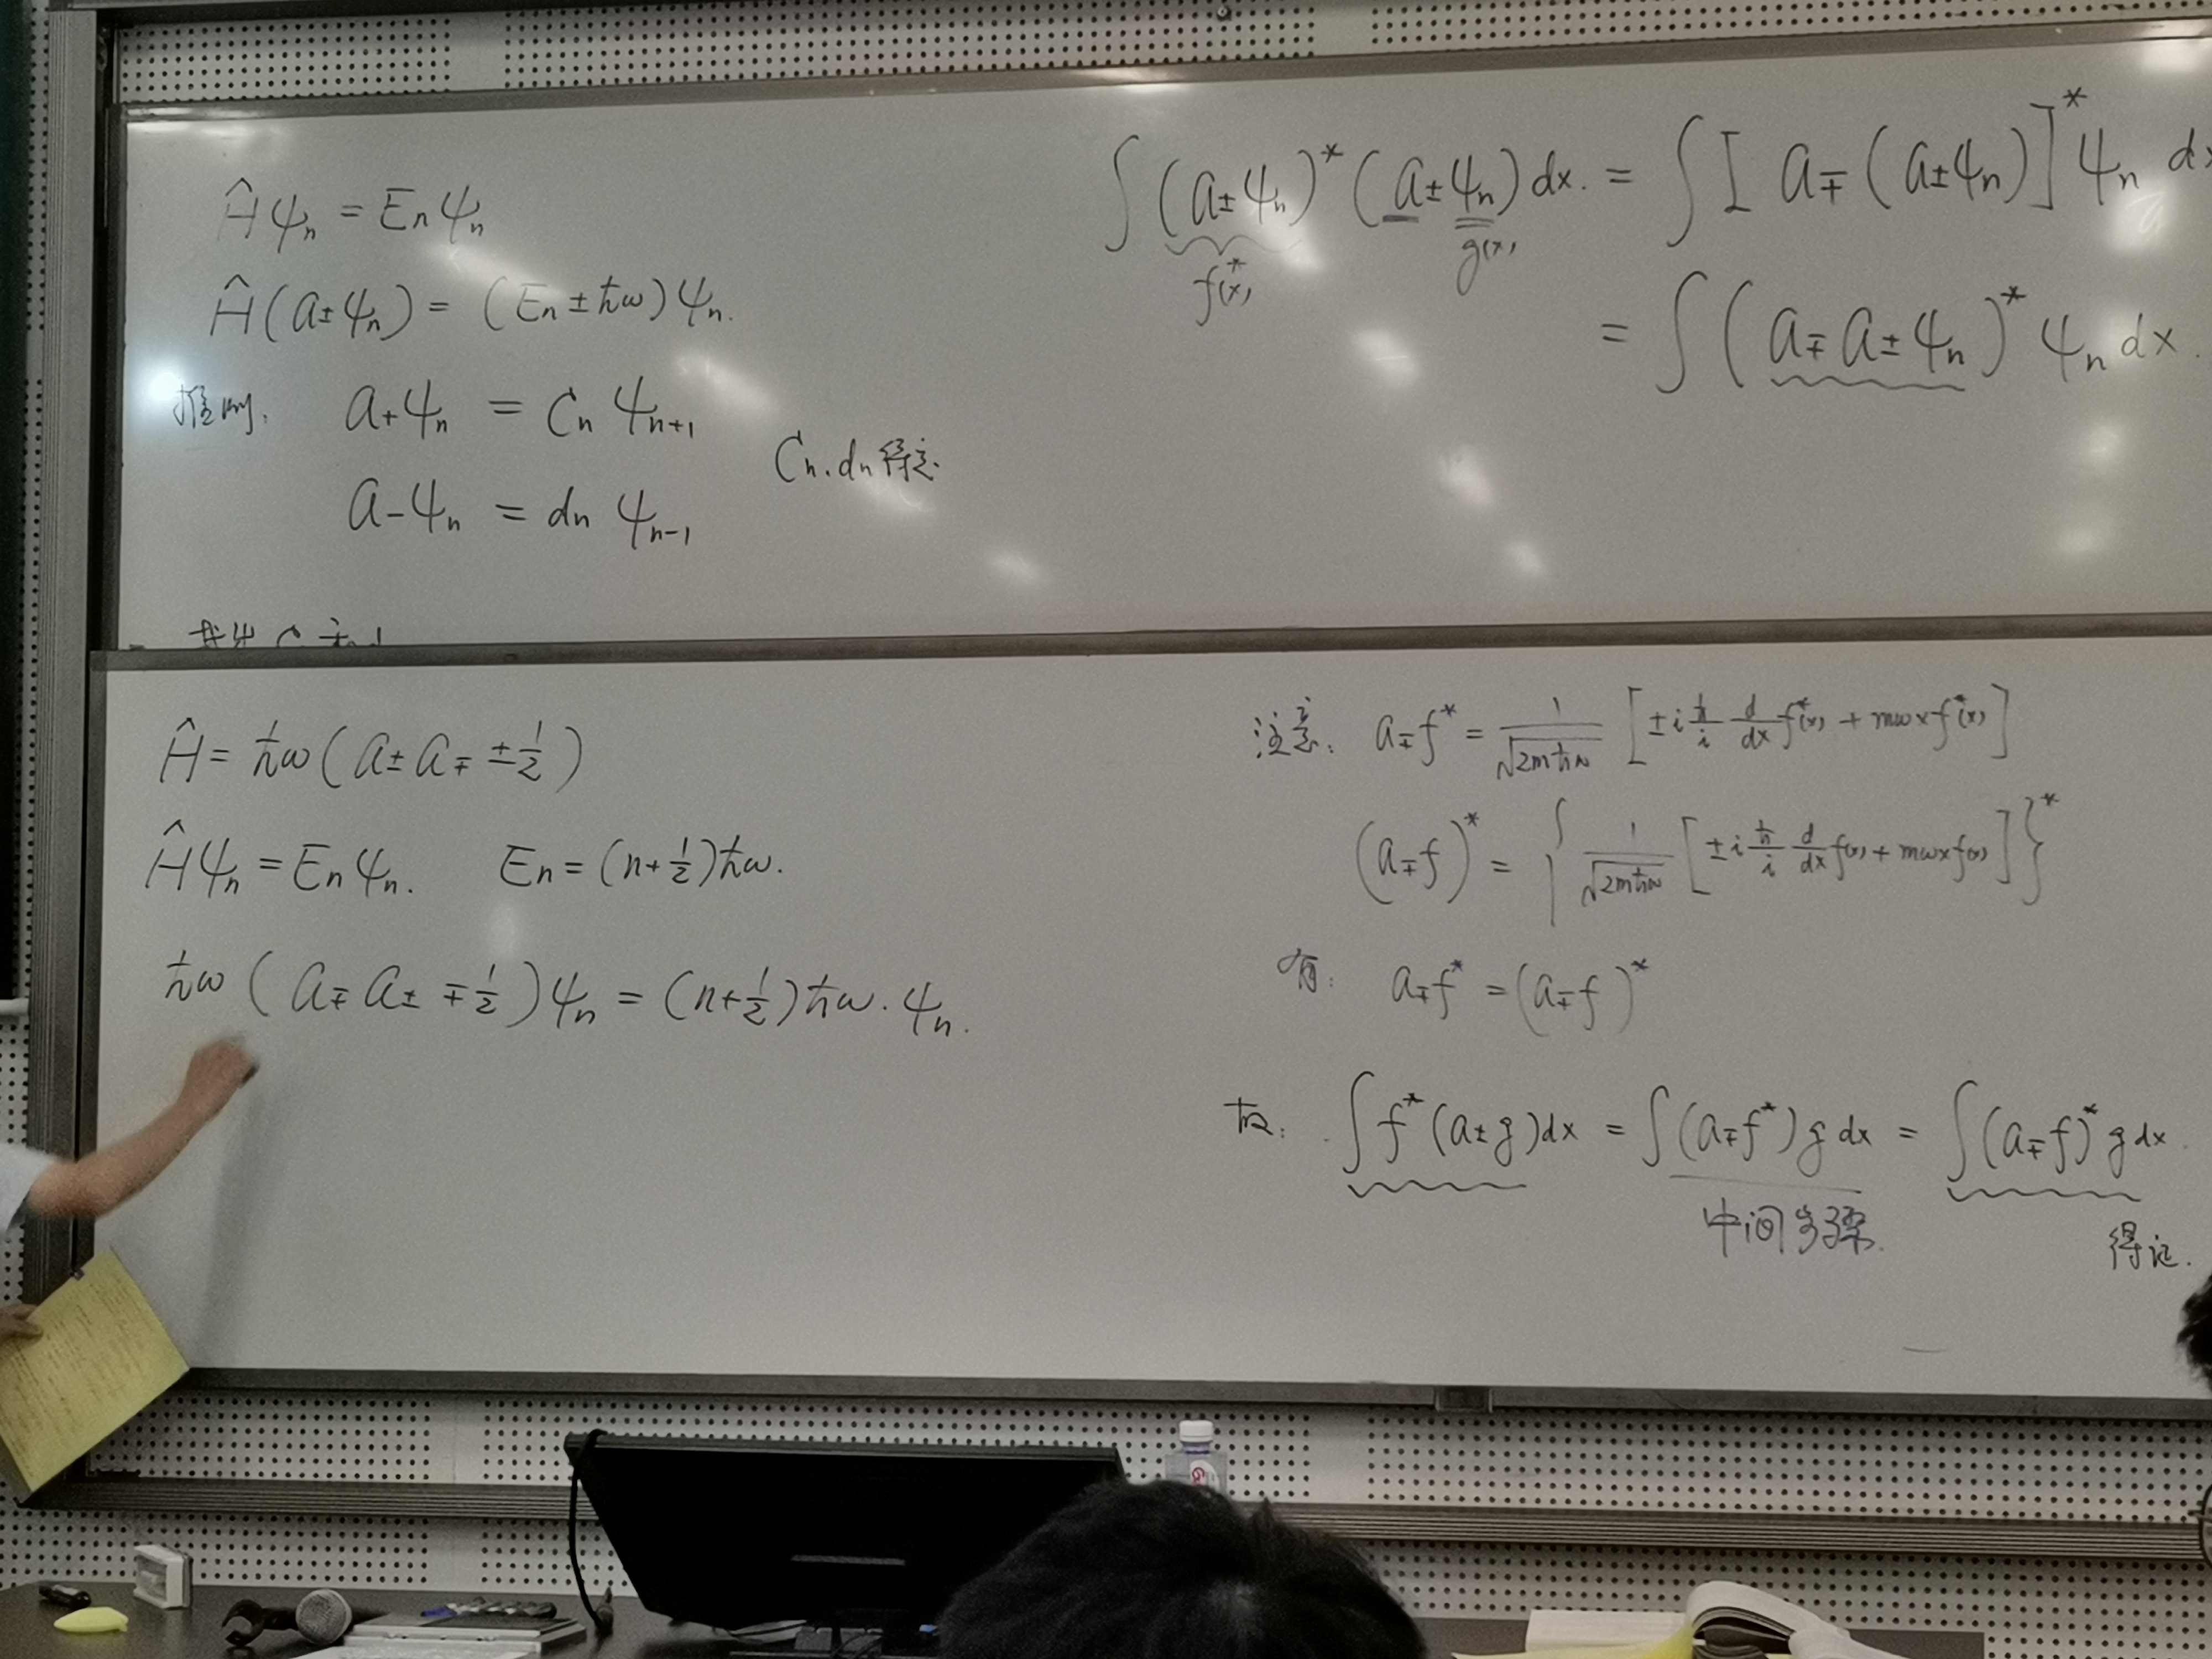 Ĥψₙ = Eₙψₙ
Ĥ(a±ψₙ) = (Eₙ ± ħω)ψₙ.
推测. a₊ψₙ = Cₙ ψₙ₊₁
a₋ψₙ = dₙ ψₙ₋₁
Cₙ. dₙ 待定.
∫(a±ψₙ)*(a±ψₙ)dx. = ∫[a∓(a±ψₙ)]*ψₙ dx
f*(x) g(x)
= ∫(a∓a±ψₙ)*ψₙdx.
Ĥ = ħω(a±a∓ ± 1/2)
Ĥψₙ = Eₙψₙ. Eₙ = (n+1/2)ħω.
ħω(a∓a± ∓ 1/2)ψₙ = (n+1/2)ħω.ψₙ.
注意: a∓f* = 1/√(2mħω) [±i ħ/i d/dx f*(x) + mωx f*(x)]
(a∓f)* = {1/√(2mħω) [±i ħ/i d/dx f(x) + mωx f(x)]}*
有: a∓f* = (a∓f)*
故: ∫f*(a±g)dx = ∫(a∓f*)g dx = ∫(a∓f)*g dx
中间步骤.
得证.